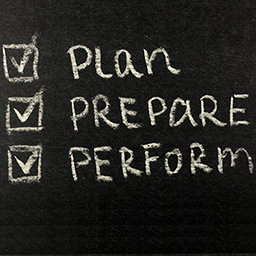 Plan
PREPARE
PERFORM